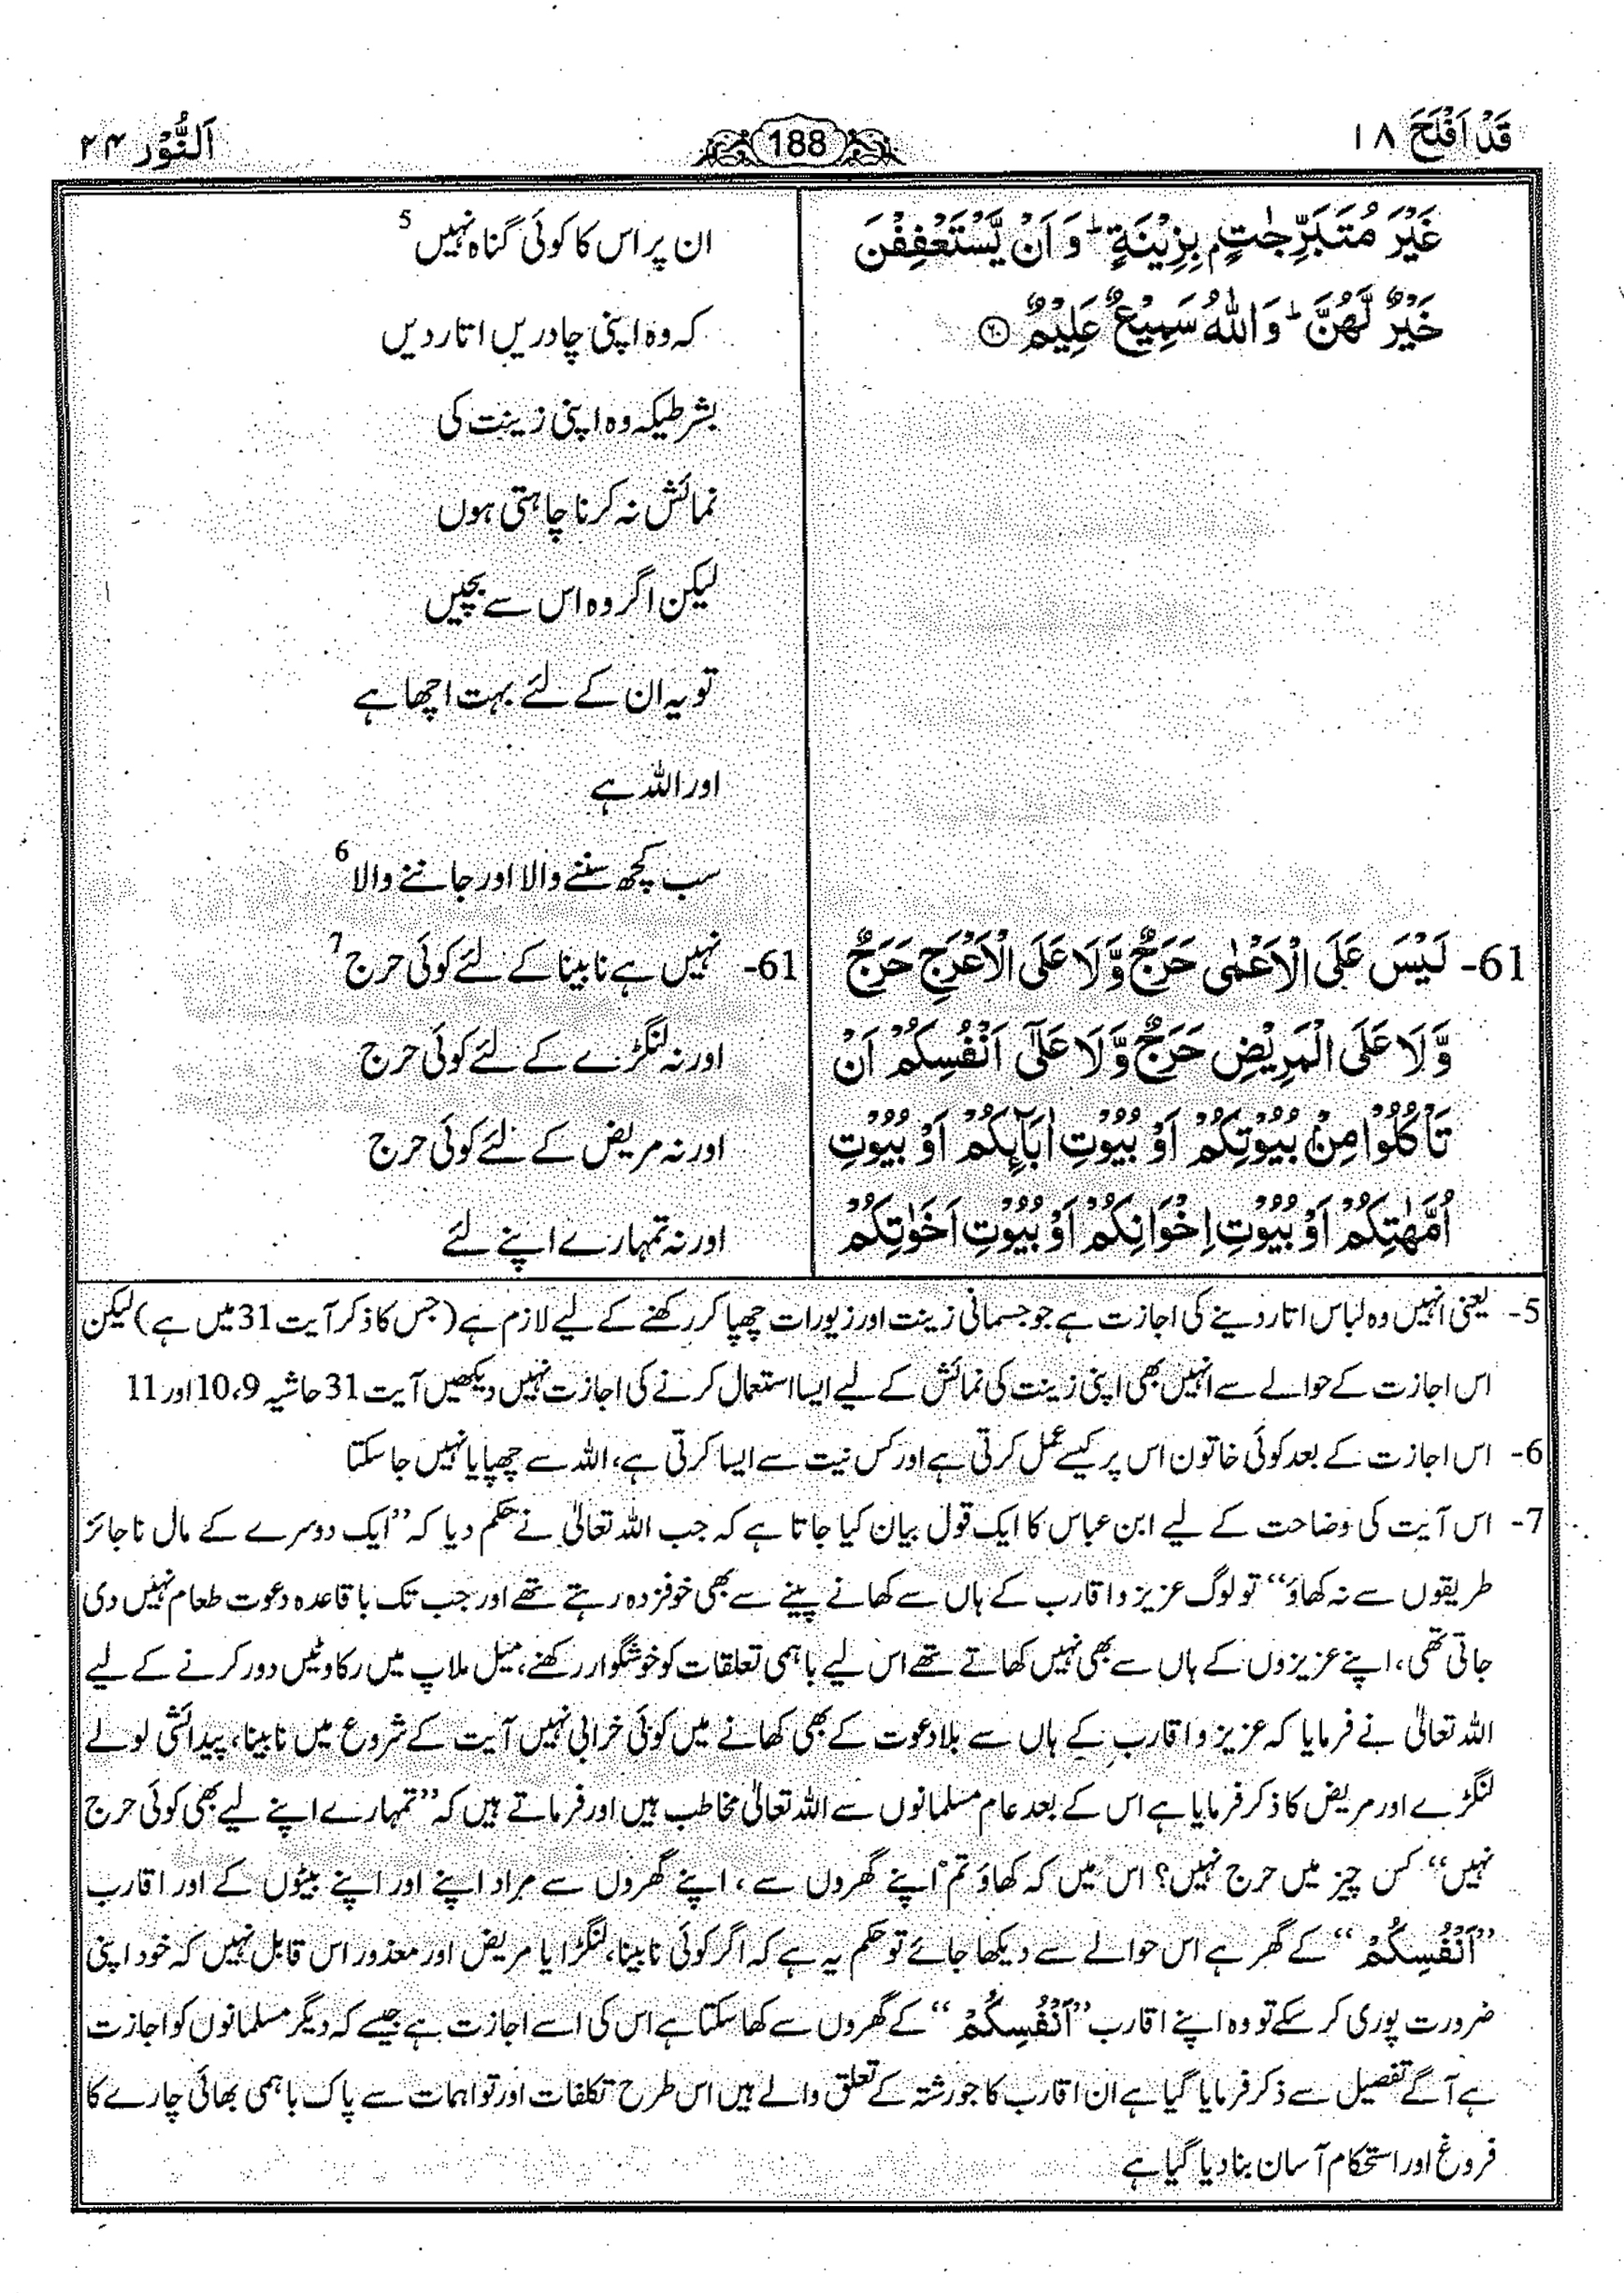 قَدْ اَفْلَحَ ۱۸
188
اَلنُّوْر ۲۴
غَيْرَ مُتَبَرِّجٰتٍۭ بِزِيْنَةٍ ؕ وَ اَنْ يَّسْتَعْفِفْنَ
خَيْرٌ لَّهُنَّ ؕ وَاللّٰهُ سَمِيْعٌ عَلِيْمٌ ﴿۶۰﴾
61- لَيْسَ عَلَى الْاَعْمٰى حَرَجٌ وَّلَا عَلَى الْاَعْرَجِ حَرَجٌ
وَّلَا عَلَى الْمَرِيْضِ حَرَجٌ وَّلَا عَلٰٓى اَنْفُسِكُمْ اَنْ
تَاْكُلُوْا مِنْۢ بُيُوْتِكُمْ اَوْ بُيُوْتِ اٰبَآئِكُمْ اَوْ بُيُوْتِ
اُمَّهٰتِكُمْ اَوْ بُيُوْتِ اِخْوَانِكُمْ اَوْ بُيُوْتِ اَخَوٰتِكُمْ
ان پر اس کا کوئی گناہ نہیں 5
کہ وہ اپنی چادریں اتار دیں
بشرطیکہ وہ اپنی زینت کی
نمائش نہ کرنا چاہتی ہوں
لیکن اگر وہ اس سے بچیں
تو یہ ان کے لئے بہت اچھا ہے
اور اللہ ہے
سب کچھ سننے والا اور جاننے والا 6
61- نہیں ہے نابینا کے لئے کوئی حرج 7
اور نہ لنگڑے کے لئے کوئی حرج
اور نہ مریض کے لئے کوئی حرج
اور نہ تمہارے اپنے لئے
5- یعنی انہیں وہ لباس اتار دینے کی اجازت ہے جو جسمانی زینت اور زیورات چھپا کر رکھنے کے لیے لازم ہے (جس کا ذکر آیت 31 میں ہے) لیکن
اس اجازت کے حوالے سے انہیں بھی اپنی زینت کی نمائش کے لیے ایسا استعمال کرنے کی اجازت نہیں دیکھیں آیت 31 حاشیہ 9، 10 اور 11
6- اس اجازت کے بعد کوئی خاتون اس پر کیسے عمل کرتی ہے اور کس نیت سے ایسا کرتی ہے، اللہ سے چھپایا نہیں جا سکتا
7- اس آیت کی وضاحت کے لیے ابن عباس کا ایک قول بیان کیا جاتا ہے کہ جب اللہ تعالیٰ نے حکم دیا کہ ”ایک دوسرے کے مال ناجائز
طریقوں سے نہ کھاؤ“ تو لوگ عزیز و اقارب کے ہاں سے کھانے پینے سے بھی خوفزدہ رہتے تھے اور جب تک باقاعدہ دعوت طعام نہیں دی
جاتی تھی، اپنے عزیزوں کے ہاں سے بھی نہیں کھاتے تھے اس لیے باہمی تعلقات کو خوشگوار رکھنے، میل ملاپ میں رکاوٹیں دور کرنے کے لیے
اللہ تعالیٰ نے فرمایا کہ عزیز و اقارب کے ہاں سے بلا دعوت کے بھی کھانے میں کوئی خرابی نہیں آیت کے شروع میں نابینا، پیدائشی لولے
لنگڑے اور مریض کا ذکر فرمایا ہے اس کے بعد عام مسلمانوں سے اللہ تعالیٰ مخاطب ہیں اور فرماتے ہیں کہ ”تمہارے اپنے لیے بھی کوئی حرج
نہیں“ کس چیز میں حرج نہیں؟ اس میں کہ کھاؤ تم اپنے گھروں سے، اپنے گھروں سے مراد اپنے اور اپنے بیٹوں کے اور اقارب
”اَنْفُسِكُمْ“ کے گھر ہے اس حوالے سے دیکھا جائے تو حکم یہ ہے کہ اگر کوئی نابینا، لنگڑا یا مریض اور معذور اس قابل نہیں کہ خود اپنی
ضرورت پوری کر سکے تو وہ اپنے اقارب ”اَنْفُسِكُمْ“ کے گھروں سے کھا سکتا ہے اس کی اسے اجازت ہے جیسے کہ دیگر مسلمانوں کو اجازت
ہے آگے تفصیل سے ذکر فرمایا گیا ہے ان اقارب کا جو رشتہ کے تعلق والے ہیں اس طرح تکلفات اور تواہمات سے پاک باہمی بھائی چارے کا
فروغ اور استحکام آسان بنا دیا گیا ہے